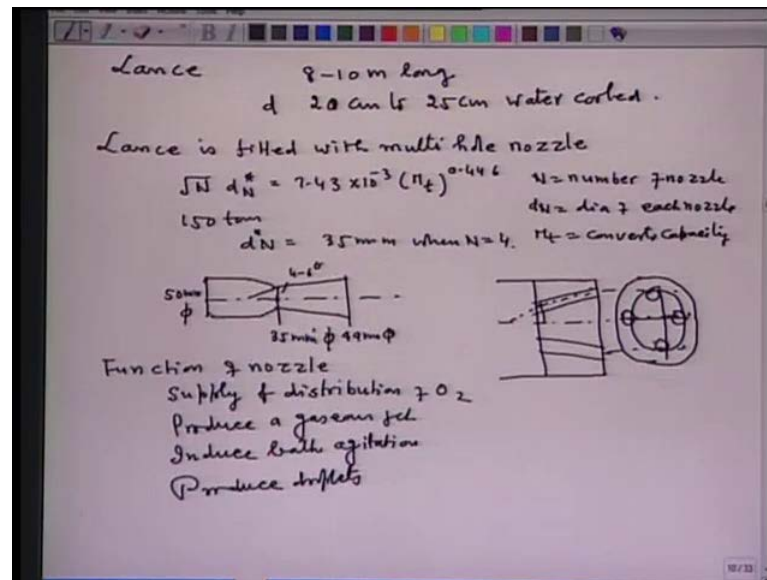 Lance 8-10 m long
d 20 cm to 25 cm water cooled.
Lance is fitted with multi hole nozzle
√N d*N = 7.43 × 10⁻³ (Mt)^0.446 N = number of nozzle
150 tons dN = dia of each nozzle
d*N = 35 mm when N = 4. Mt = converter capacity
4-6°
50mm φ
35 mm φ 49mm φ
Function of nozzle
Supply & distribution of O2
Produce a gaseous jet
Induce bath agitation
Produce droplets
10/33